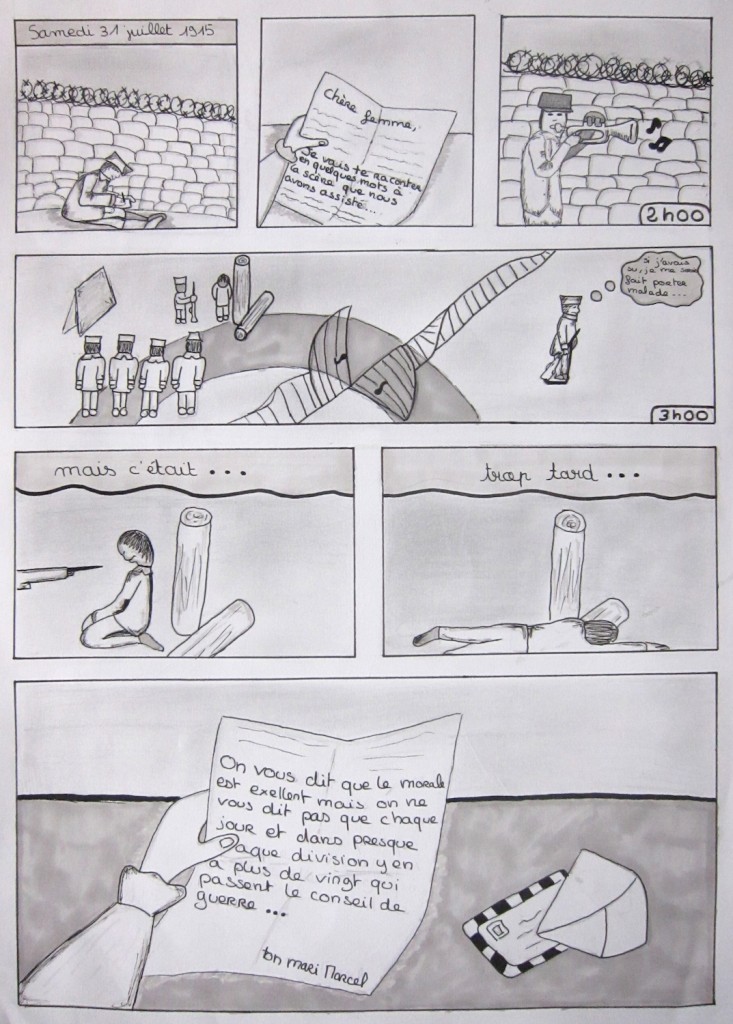 Samedi 31 juillet 1915
Chère femme,
Je vais te raconter
en quelques mots à
la scène que nous
avons assisté...
2h00
si j'avais
su, je me serai
fait porter
malade...
3h00
mais c'était ...
trop tard ...
On vous dit que le morale
est exellent mais on ne
vous dit pas que chaque
jour et dans presque
chaque division y en
a plus de vingt qui
passent le conseil de
guerre ...
ton mari Marcel